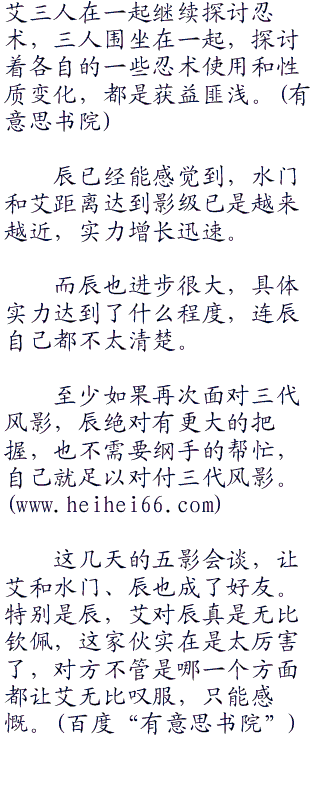 艾三人在一起继续探讨忍
术，三人围坐在一起，探讨
着各自的一些忍术使用和性
质变化，都是获益匪浅。(有
意思书院)
辰已经能感觉到，水门
和艾距离达到影级已是越来
越近，实力增长迅速。
而辰也进步很大，具体
实力达到了什么程度，连辰
自己都不太清楚。
至少如果再次面对三代
风影，辰绝对有更大的把
握，也不需要纲手的帮忙，
自己就足以对付三代风影。
(www.heihei66.com)
这几天的五影会谈，让
艾和水门、辰也成了好友。
特别是辰，艾对辰真是无比
钦佩，这家伙实在是太厉害
了，对方不管是哪一个方面
都让艾无比叹服，只能感
慨。(百度“有意思书院”)